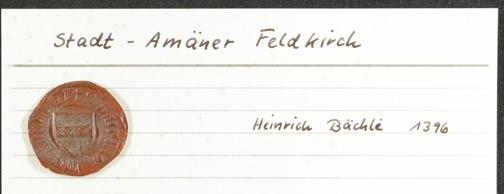 Stadt - Amäner Feldkirch
Heinrich Bächle 1396